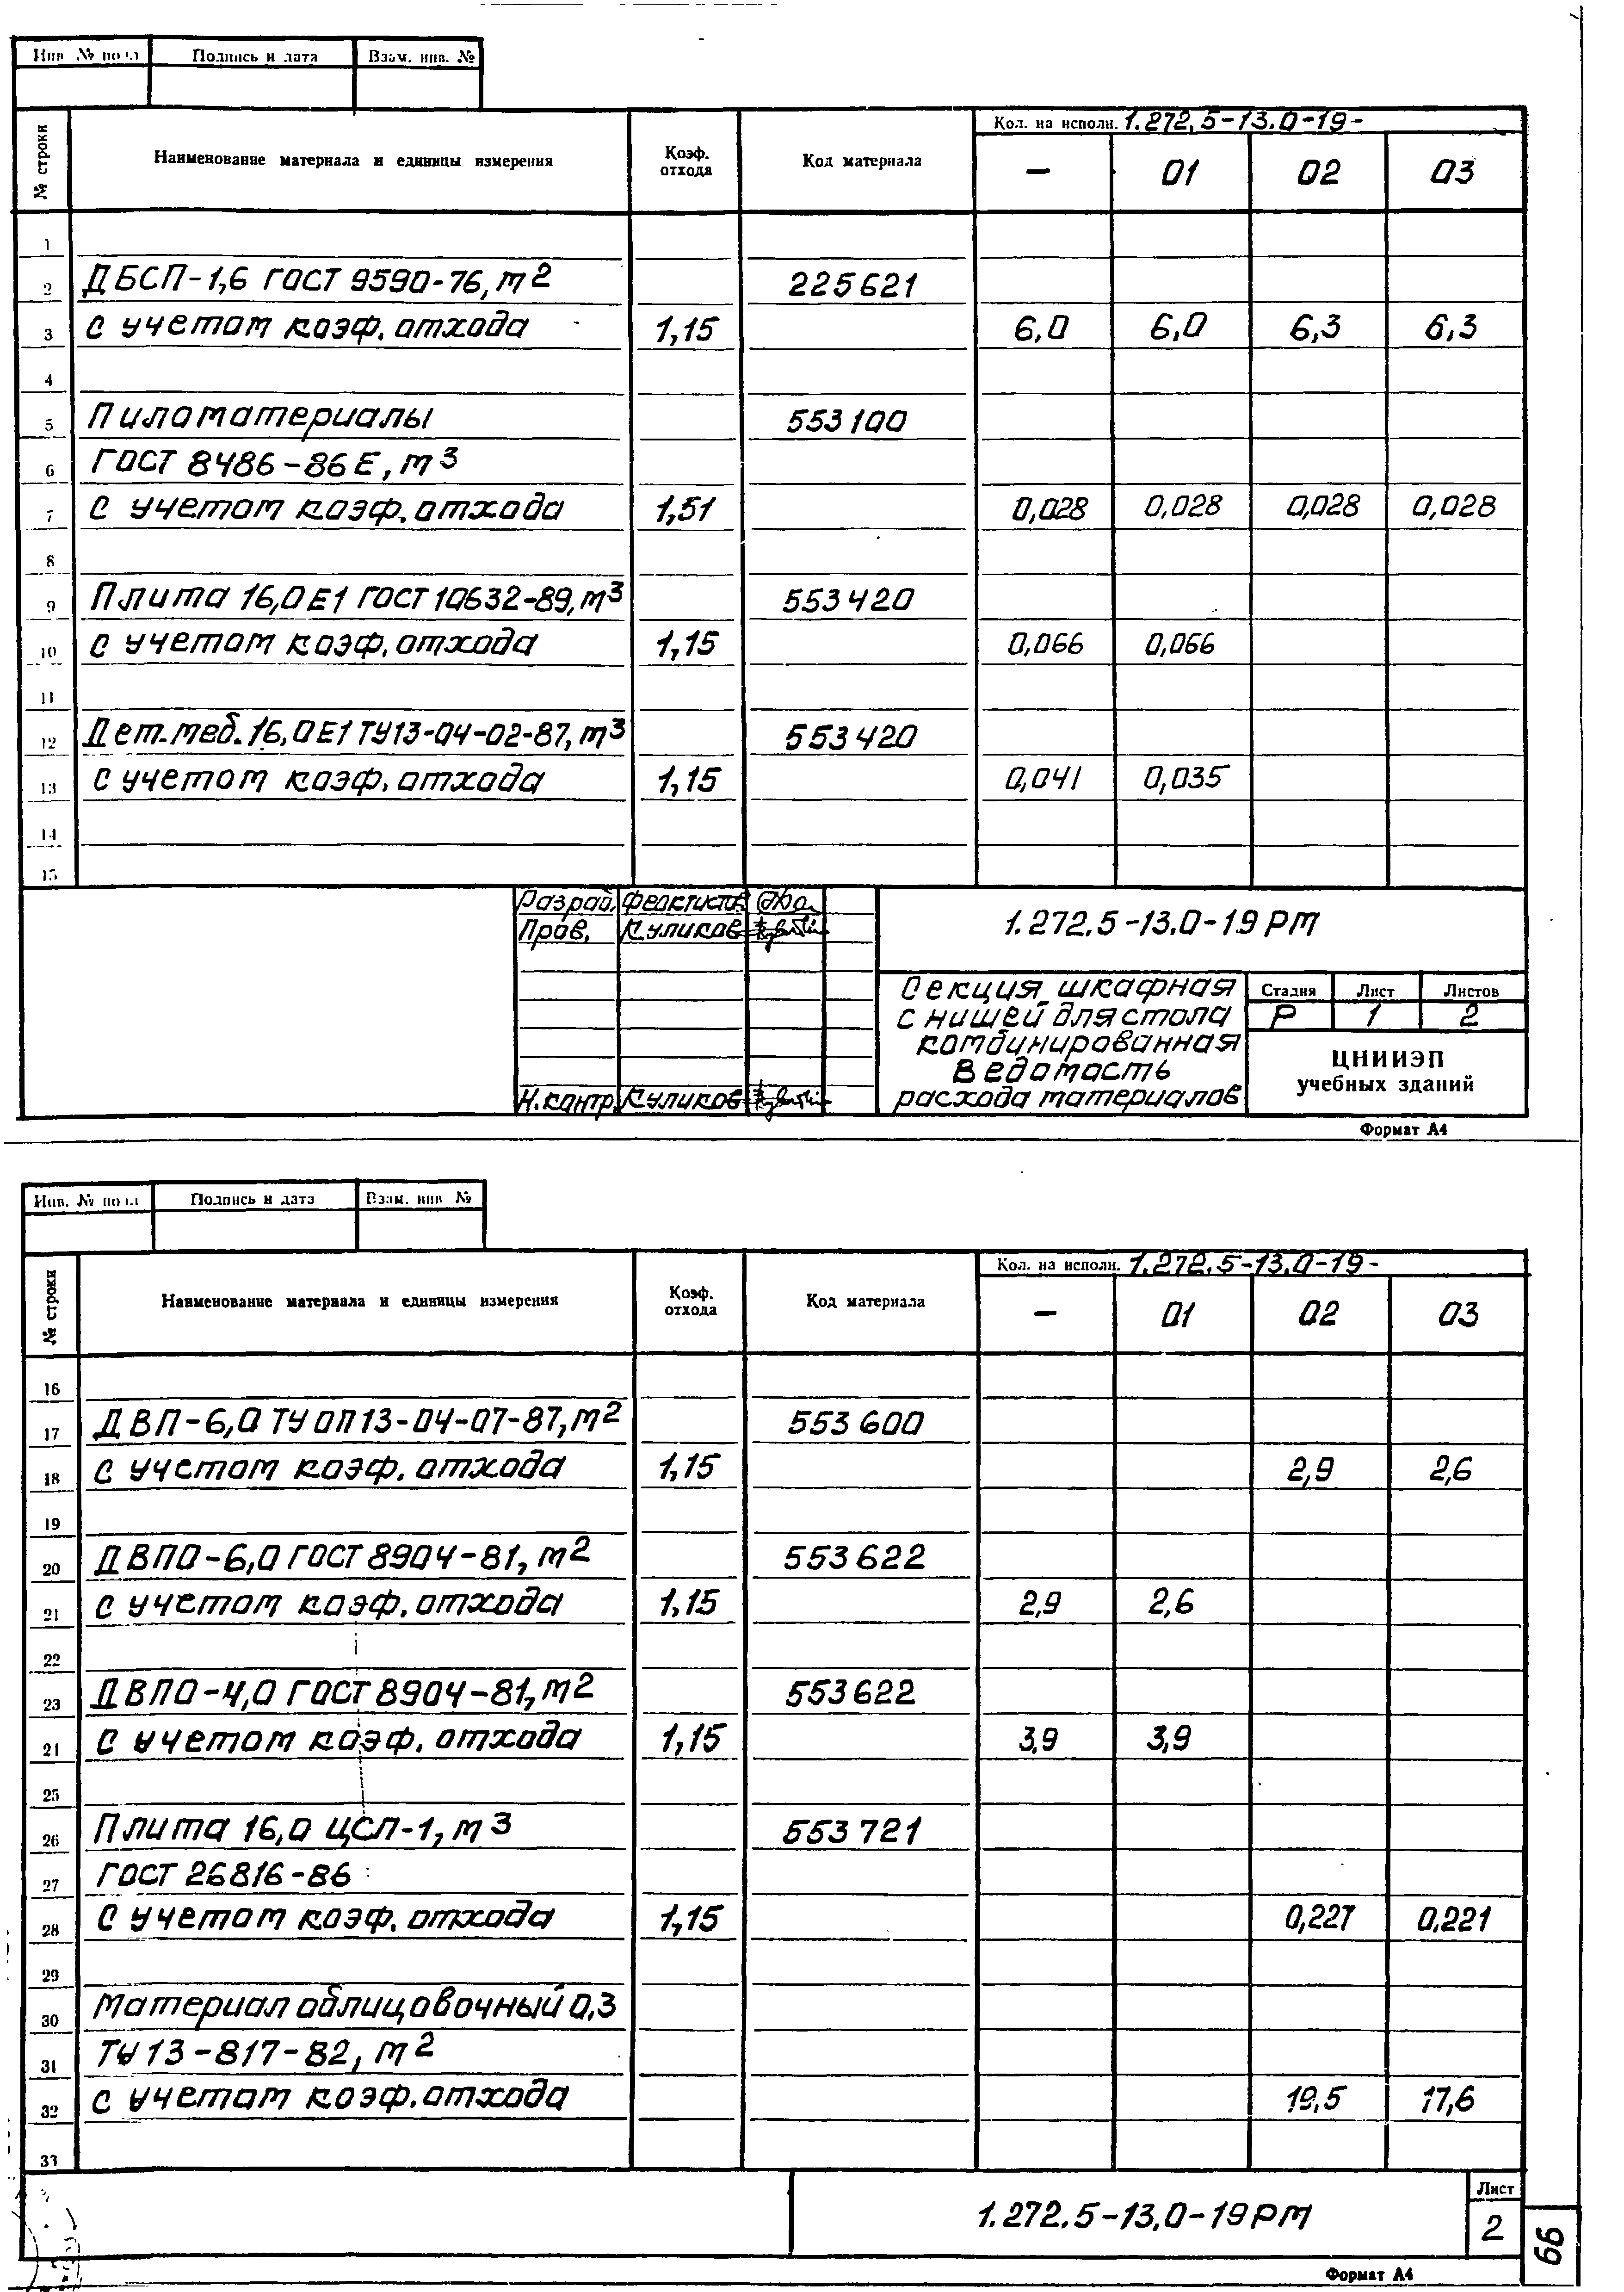 Инв. № подл Подпись и дата Взам. инв. №
№ строки Наименование материала и единицы измерения Коэф. отхода Код материала Кол. на исполн. 1.272.5-13.0-19-
– 01 02 03
1
2 ДБСП-1,6 ГОСТ 9590-76, м2 225621
3 С учетом коэф. отхода 1,15 6,0 6,0 6,3 6,3
4
5 Пиломатериалы 553100
6 ГОСТ 8486-86Е, м3
7 С учетом коэф. отхода 1,51 0,028 0,028 0,028 0,028
8
9 Плита 16,0 Е1 ГОСТ 10632-89, м3 553420
10 С учетом коэф. отхода 1,15 0,066 0,066
11
12 Дет. меб. 16,0 Е1 ТУ13-04-02-87, м3 553420
13 С учетом коэф. отхода 1,15 0,041 0,035
14
15
Разраб. Феоктистов
Пров. Куликов
Н. контр. Куликов
1.272.5-13.0-19 РМ
Секция шкафная
с нишей для стола
комбинированная
Ведомость
расхода материалов
Стадия Лист Листов
Р 1 2
ЦНИИЭП
учебных зданий
Формат А4
Инв. № подл Подпись и дата Взам. инв №
№ строки Наименование материала и единицы измерения Коэф. отхода Код материала Кол. на исполн. 1.272.5-13.0-19-
– 01 02 03
16
17 ДВП-6,0 ТУ ОП 13-04-07-87, м2 553600
18 С учетом коэф. отхода 1,15 2,9 2,6
19
20 ДВПО-6,0 ГОСТ 8904-81, м2 553622
21 С учетом коэф. отхода 1,15 2,9 2,6
22
23 ДВПО-4,0 ГОСТ 8904-81, м2 553622
21 С учетом коэф. отхода 1,15 3,9 3,9
25
26 Плита 16,0 ЦСП-1, м3 553721
27 ГОСТ 26816-86
28 С учетом коэф. отхода 1,15 0,227 0,221
29
30 Материал облицовочный 0,3
31 ТУ 13-817-82, м2
32 С учетом коэф. отхода 19,5 17,6
33
1.272.5-13.0-19РМ
Лист
2
66
Формат А4